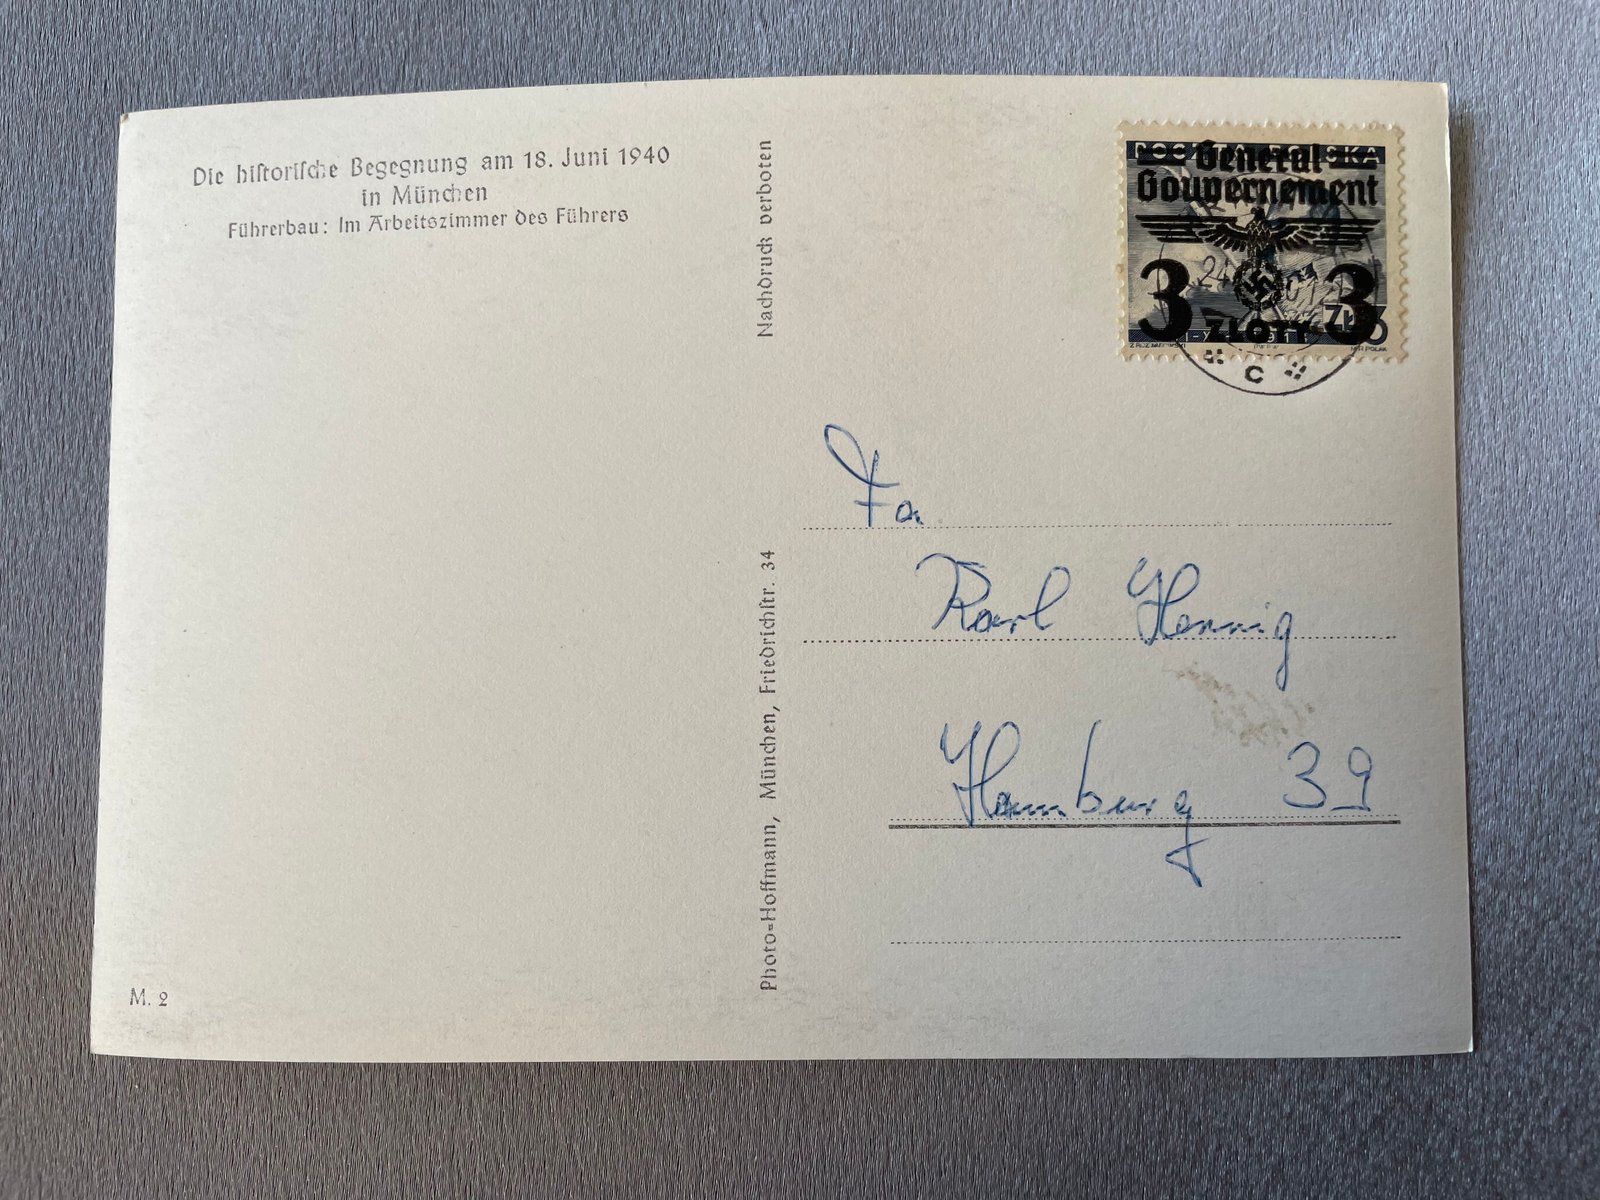 Die hiſtoriſche Begegnung am 18. Juni 1940
in München
Führerbau: Im Arbeitszimmer des Führers
M. 2
Nachdruck verboten
Photo-Hoffmann, München, Friedrichſtr. 34
POCZTA POLSKA
General
Gouvernement
3 3
ZŁOTY
24
C
Fa.
Karl Hennig
Hamburg 39